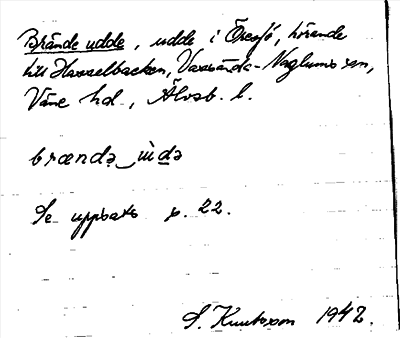 Brände udde, udde i Öresjö, hörande
till Hasselbacken, Vassända-Naglums sn,
Väne hd., Älvsb. l.
brændə_ ùdə
Se uppsats s. 22.
S. Knutsson 1942.